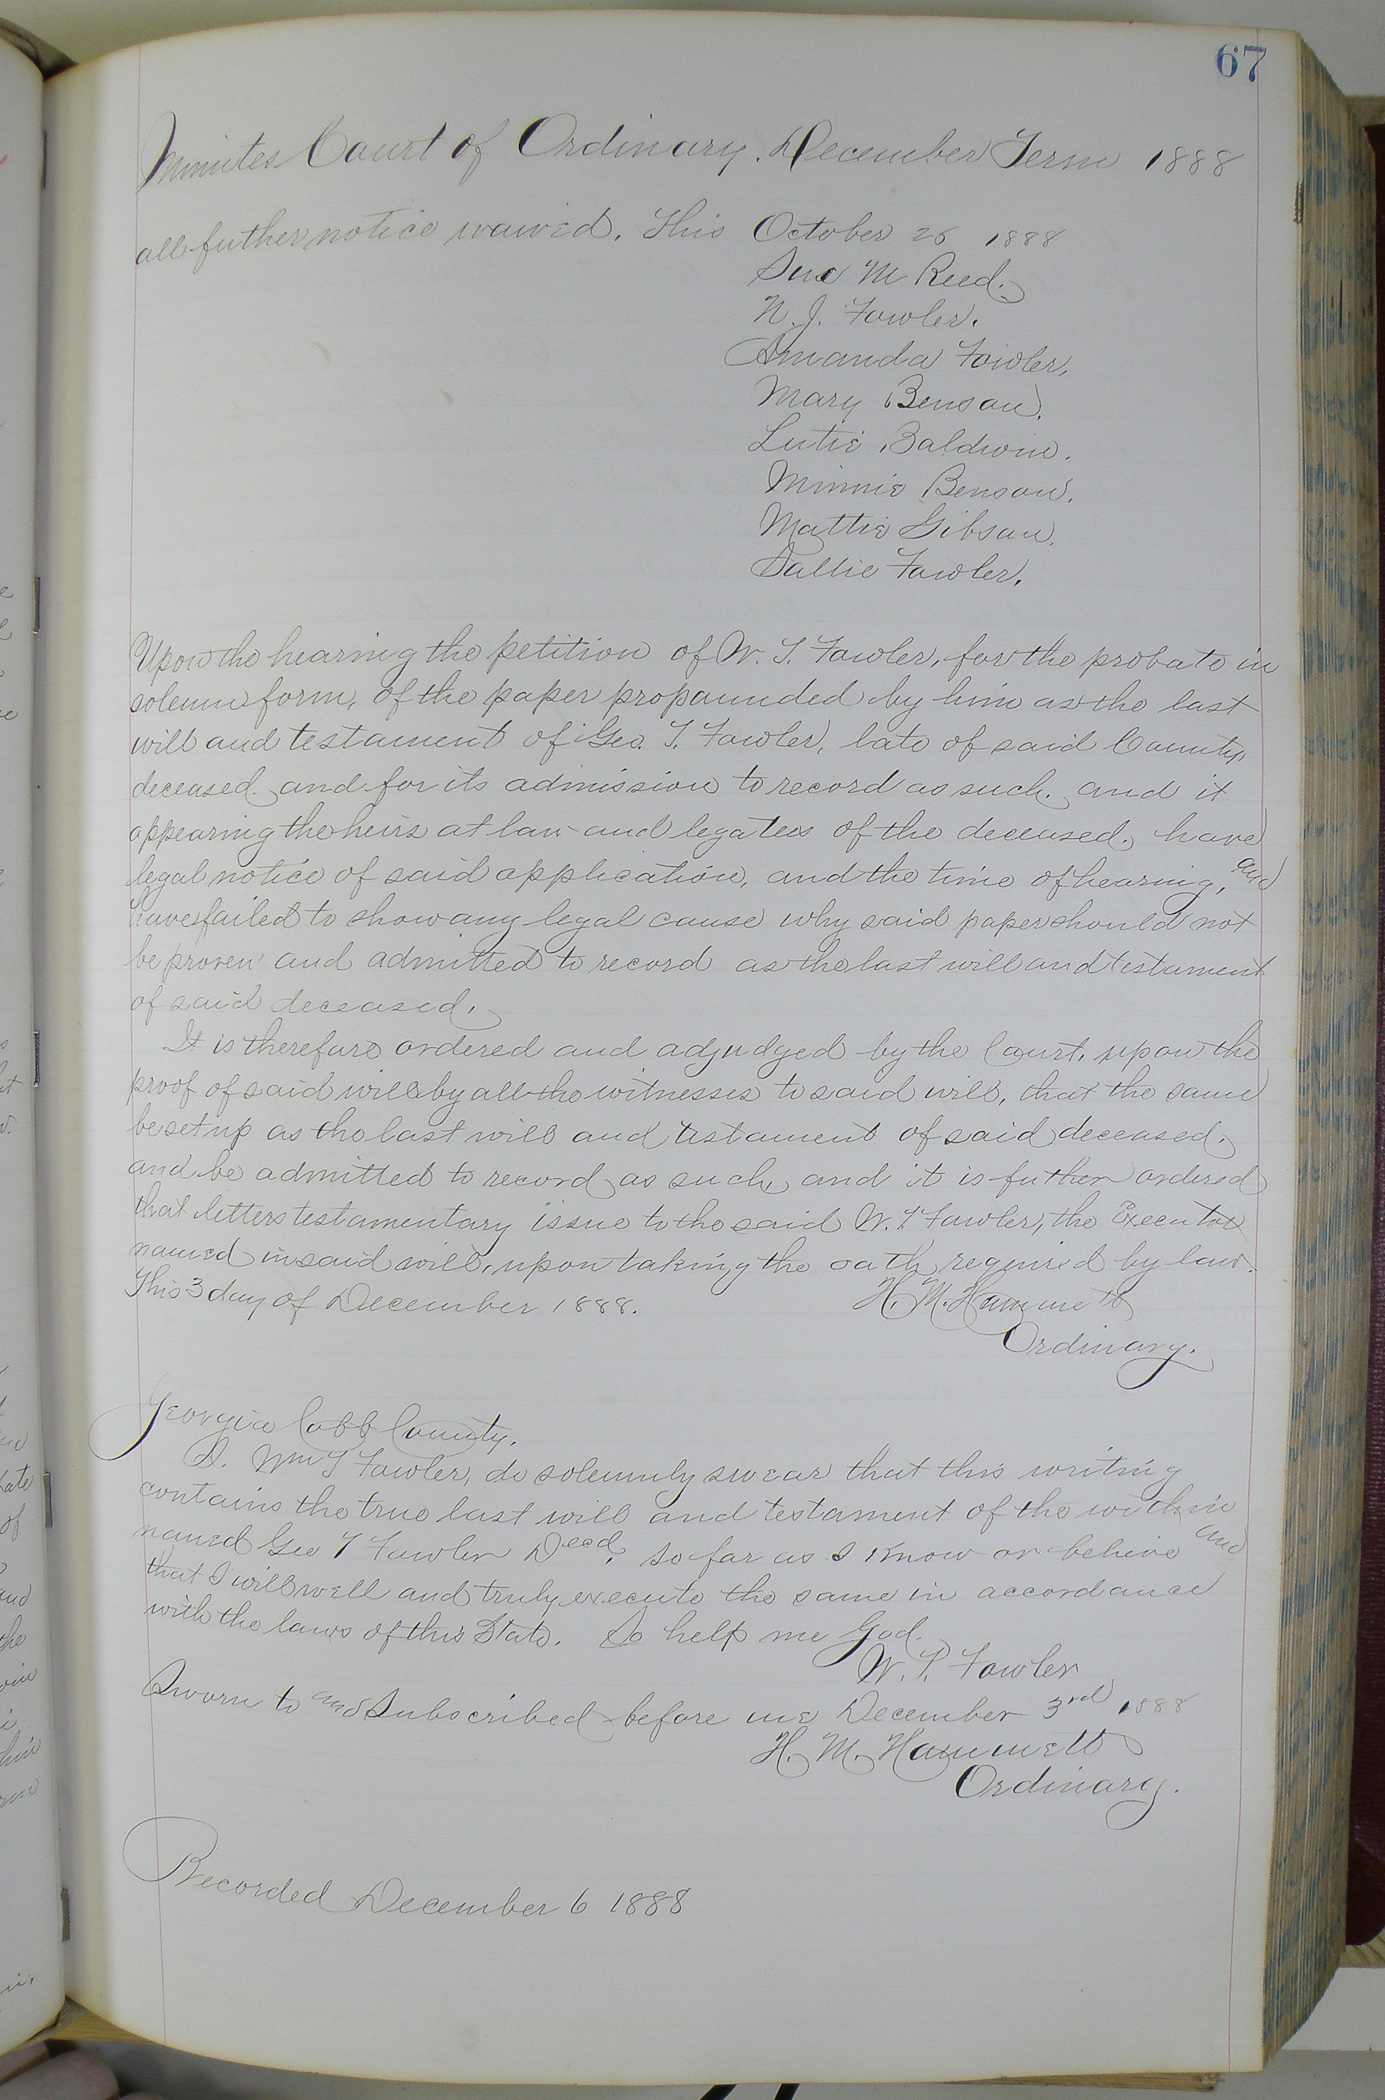 67
Minutes Court of Ordinary. December Term 1888
all futher notice waived. This October 26 1888
Sue M Reed.
N. J. Fowler.
Amanda Fowler,
Mary Benson.
Lutie Baldwin.
Minnie Benson.
Mattie Gibson.
Sallie Fowler.
Upon the hearing the petition of W. T. Fowler, for the probate in
solemn form, of the paper propounded by him as the last
will and testament of Geo. T. Fowler, late of said County,
deceased. and for its admission to record as such. and it
appearing the heirs at law and legatees of the deceased, have
legal notice of said application, and the time of hearing, and
have failed to show any legal cause why said paper should not
be proven and admitted to record as the last will and testament
of said deceased.
It is therefore ordered and adjudged by the Court, upon the
proof of said will by all the witnesses to said will, that the same
be set up as the last will and testament of said deceased.
and be admitted to record as such, and it is futher ordered
that letters testamentary issue to the said W. T. Fowler, the Executor
named in said will, upon taking the oath required by law.
This 3 day of December 1888. H. M. Hammett
Ordinary.
Georgia Cobb County.
I. Wm T Fowler, do solemnly swear that this writing
contains the true last will and testament of the within
named Geo T Fowler Decd, so far as I know or believe and
that I will well and truly execute the same in accordance
with the laws of this State. So help me God.
W. T. Fowler
Sworn to and Subscribed before me December 3rd 1888
H. M. Hammett
Ordinary.
Recorded December 6 1888